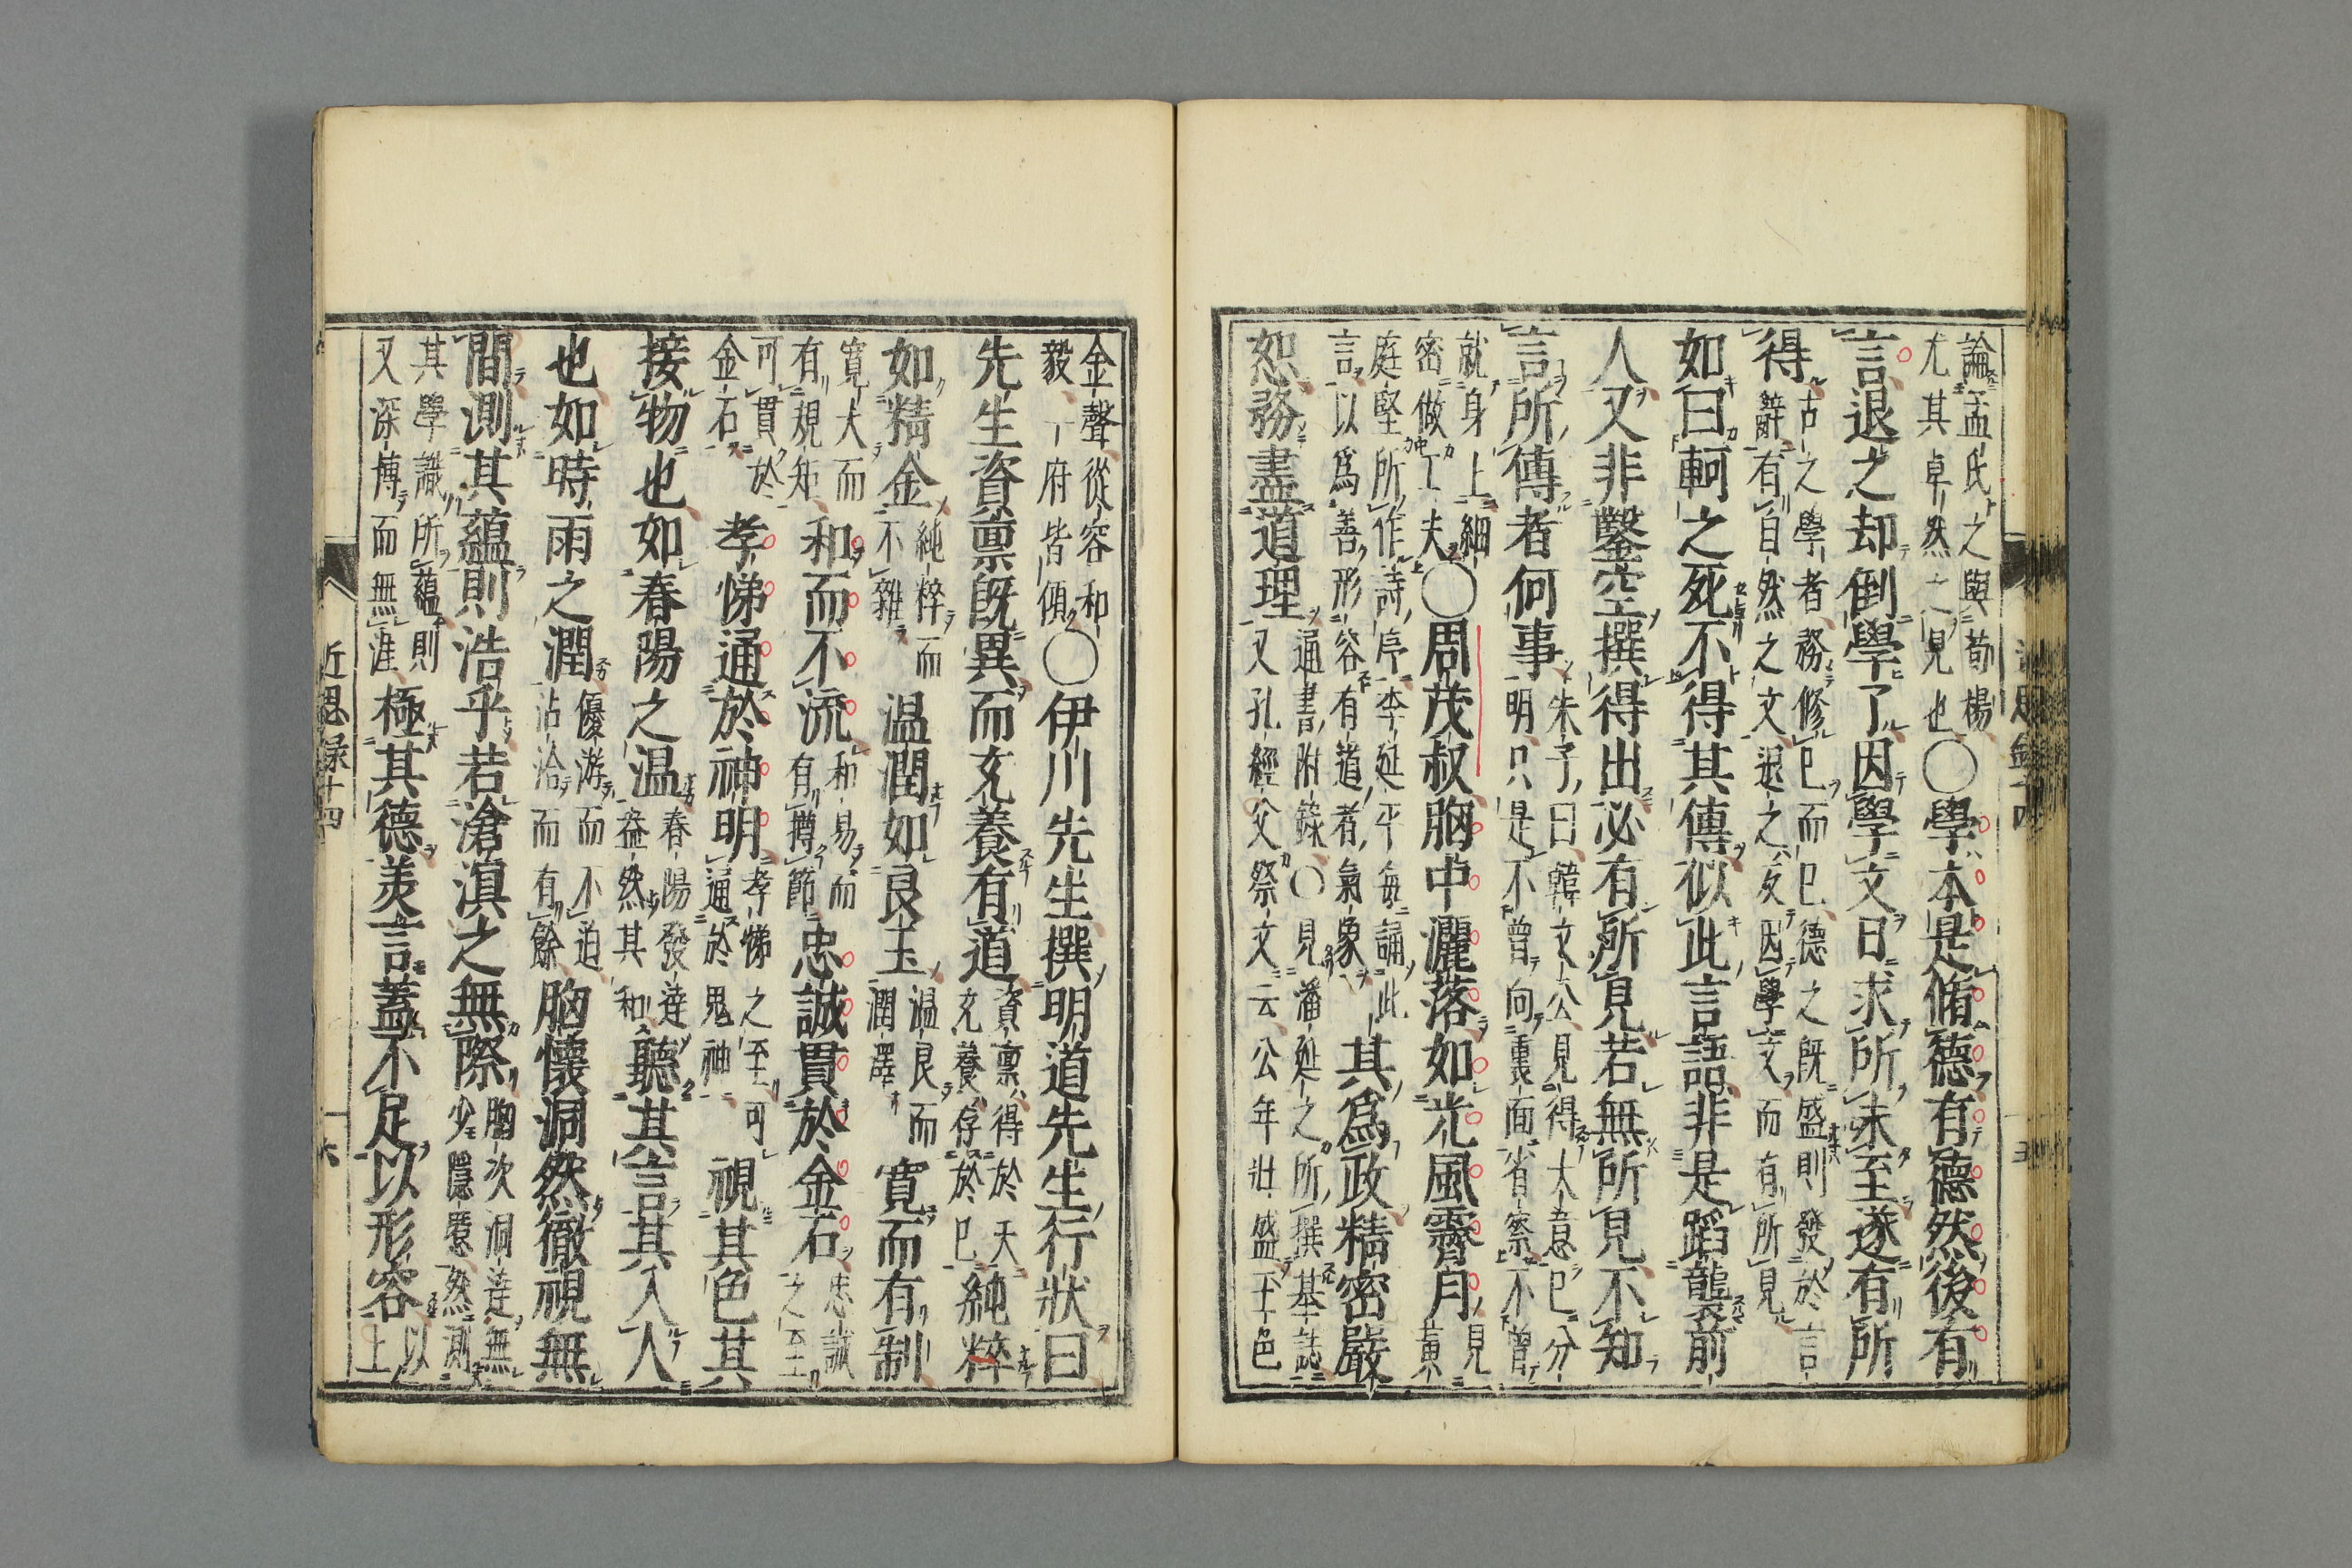 論孟氏之與荀楊
尤其卓然之見也○學本是脩德有德然後有
言退之却倒學了因學文日求所未至遂有所
得古之學者務修已而已德之既盛則發於言
辭有自然之文退之反因學文而有所見
如曰軻之死不得其傳似此言語非是蹈襲前
人又非鑿空撰得出必有所見若無所見不知
言所傳者何事朱子曰韓文公見得大意已分
明只是不曾向裏面省察不曾
就身上細
密做工夫○周茂叔胸中灑落如光風霽月見
黄
庭堅所作詩序李延平每誦此
言以爲善形容有道者氣象其爲政精密嚴
恕務盡道理通書附錄○見潘延之所撰墓誌
又孔經父祭文云公年壯盛玉色
金聲從容和
毅一府皆傾○伊川先生撰明道先生行狀曰
先生資禀既異而充養有道資禀得於天
充養存於已純粹
如精金純粹而
不雜温潤如良玉温良而
潤澤寛而有制
寛大而
有規矩和而不流和易而
有撙節忠誠貫於金石忠誠
之至
可貫於
金石孝悌通於神明孝悌之至可
通於鬼神視其色其
接物也如春陽之温春陽發達
盎然其和聽其言其入人
也如時雨之潤優游而不迫
沾洽而有餘胸懐洞然徹視無
間測其蘊則浩乎若滄溟之無際胸次洞達無
少隱慝然測
其學識所蘊則
又深博而無涯極其德美言蓋不足以形容以
上
近思録十四
十六